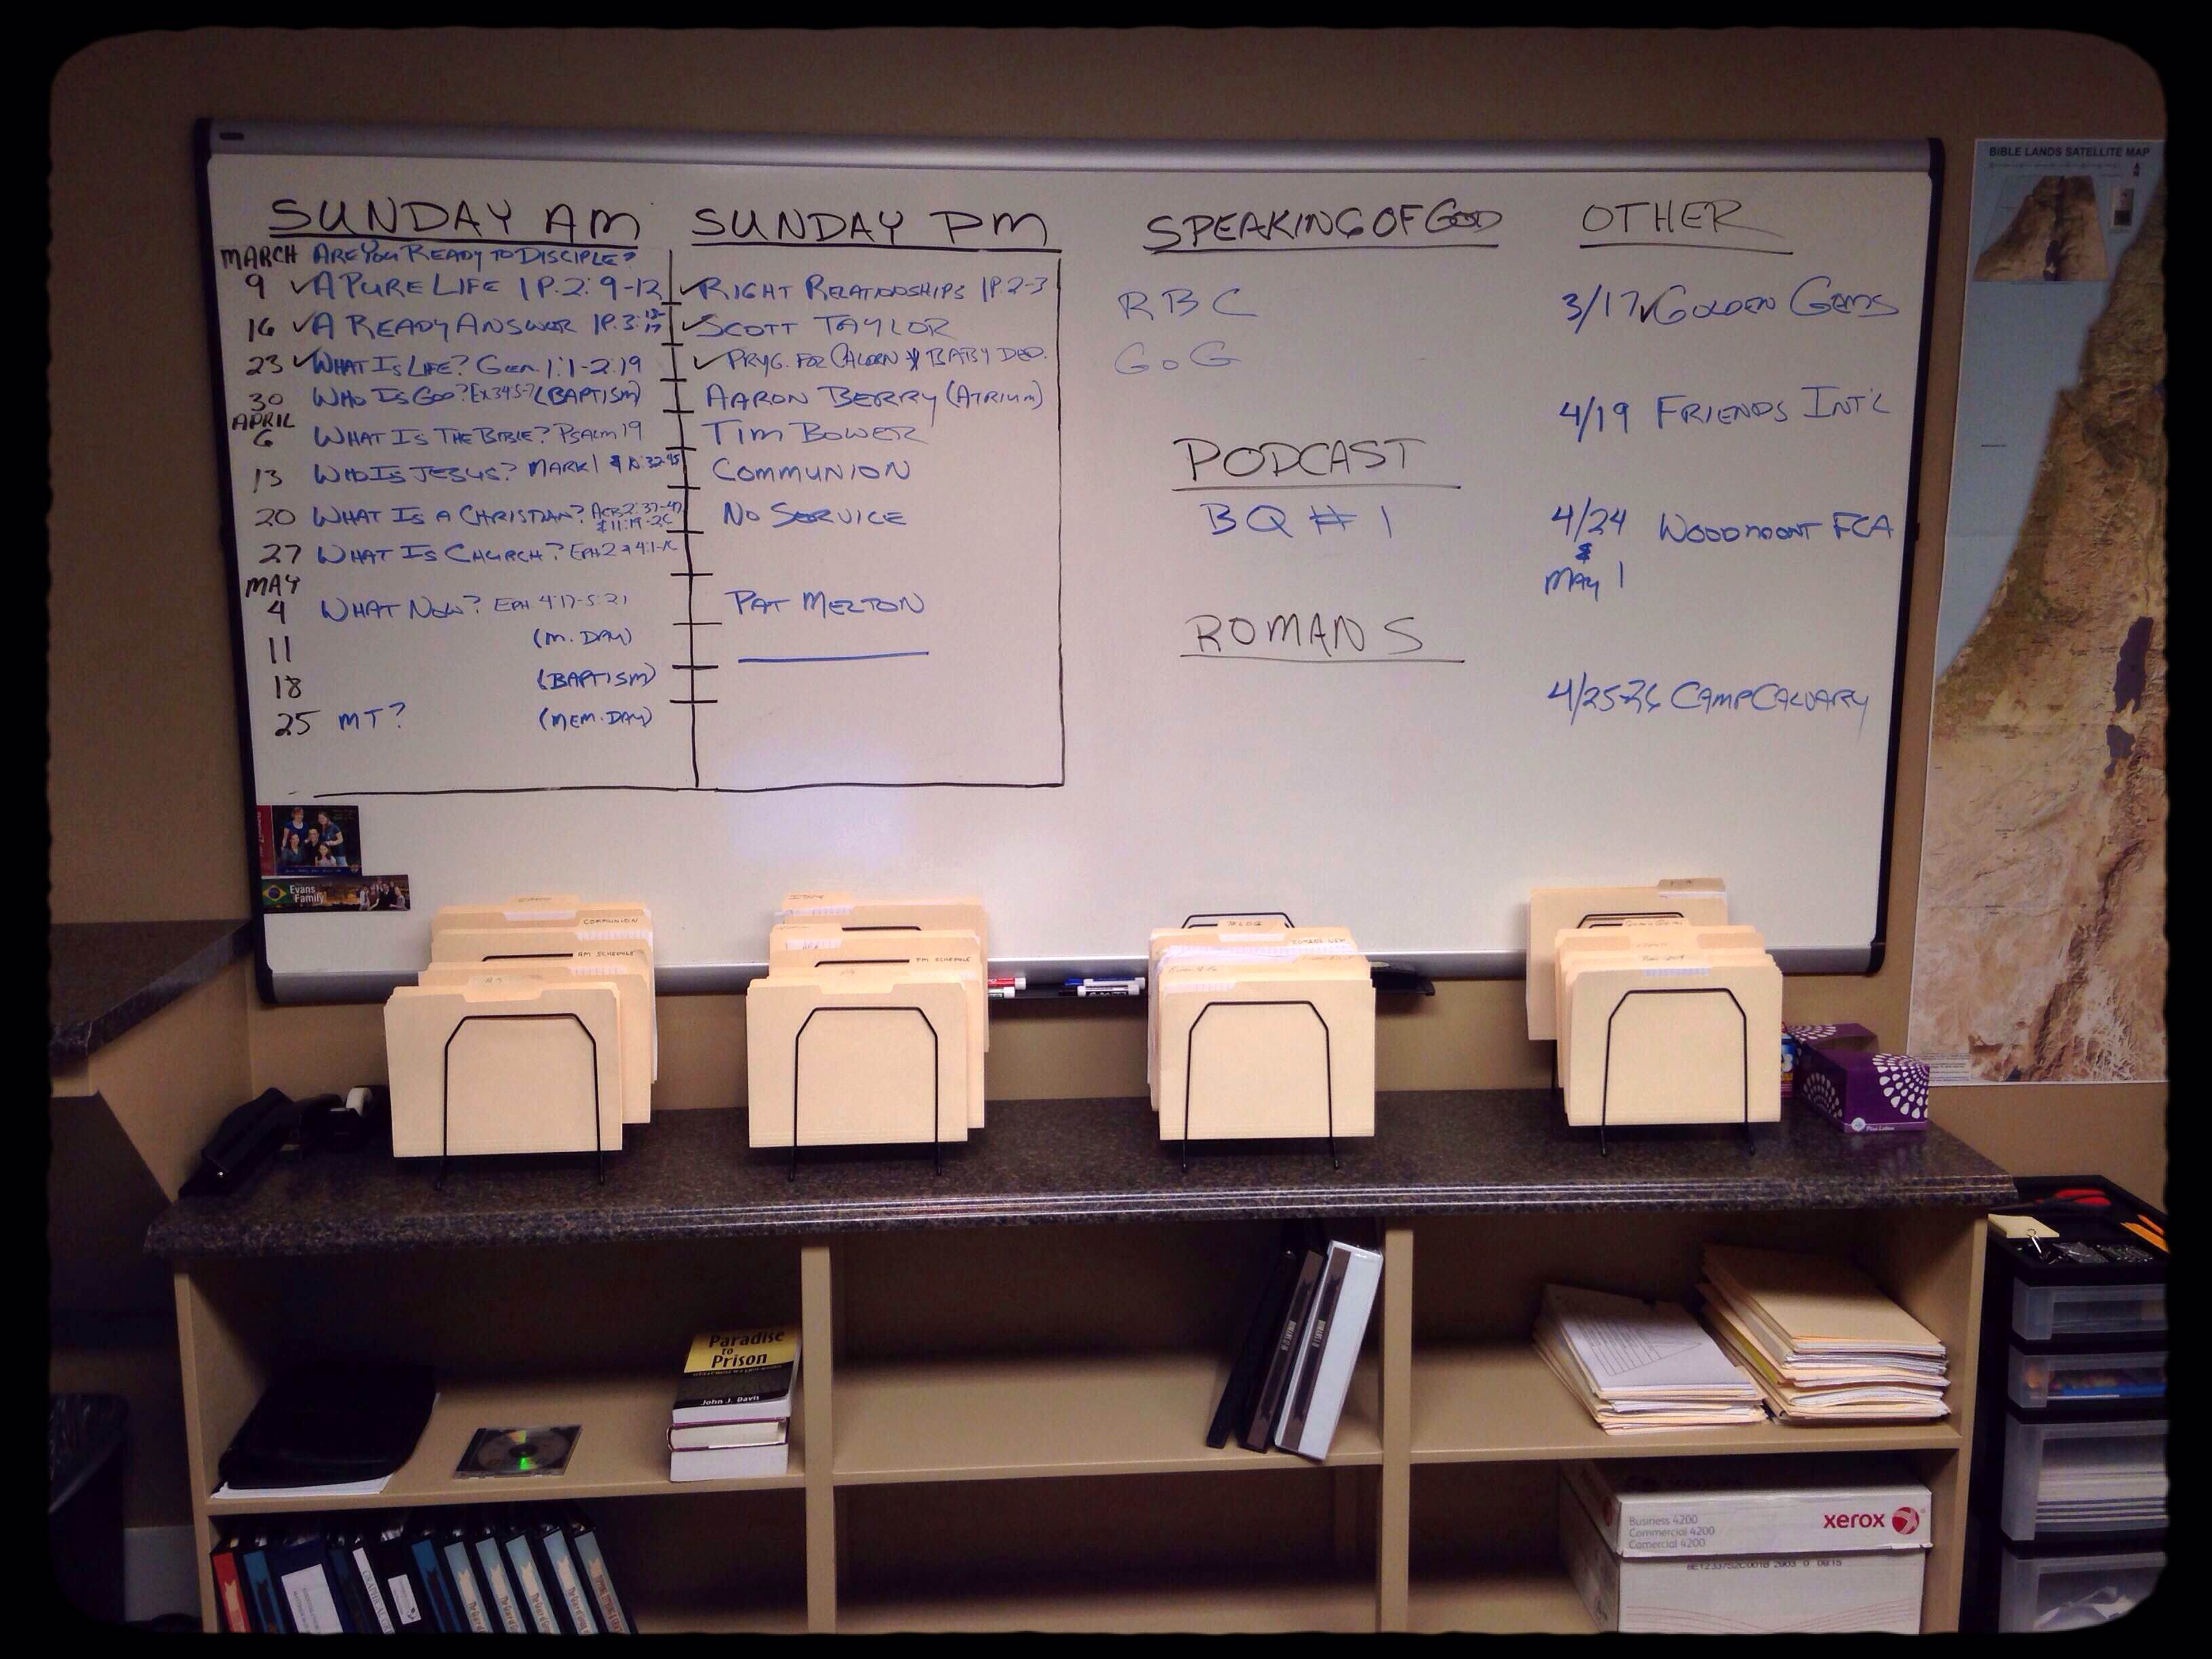 SUNDAY AM
MARCH ARE YOU READY TO DISCIPLE?
9 ✓ A PURE LIFE 1P. 2:9-12
16 ✓ A READY ANSWER 1P. 3:13-17
23 ✓ WHAT IS LIFE? GEN. 1:1-2:19
30 WHO IS GOD? EX 34:5-7 (BAPTISM)
APRIL
6 WHAT IS THE BIBLE? PSALM 19
13 WHO IS JESUS? MARK 1 & 10:32-45
20 WHAT IS A CHRISTIAN? ACTS 2:37-47
& 11:19-26
27 WHAT IS CHURCH? EPH 2 & 4:1-16
MAY
4 WHAT NOW? EPH 4:17-5:21
11 (M. DAY)
18 (BAPTISM)
25 MT? (MEM. DAY)
SUNDAY PM
✓ RIGHT RELATIONSHIPS 1P. 2-3
✓ SCOTT TAYLOR
✓ PRYG. FOR & BABY DED.
AARON BERRY (ATRIUM)
TIM BOWER
COMMUNION
NO SERVICE
PAT MELTON
SPEAKING OF GOD
RBC
GOG
PODCAST
BQ #1
ROMANS
OTHER
3/17 ✓ GOLDEN GEMS
4/19 FRIENDS INT'L
4/24 WOODMONT FCA
&
MAY 1
4/25-26 CAMP CALVARY
BIBLE LANDS SATELLITE MAP
Evans
Family
COMMUNION
AM SCHEDULE
PM SCHEDULE
BLOG
Paradise
to
Prison
John J. Davis
Business 4200
Commercial 4200
Comercial 4200
xerox